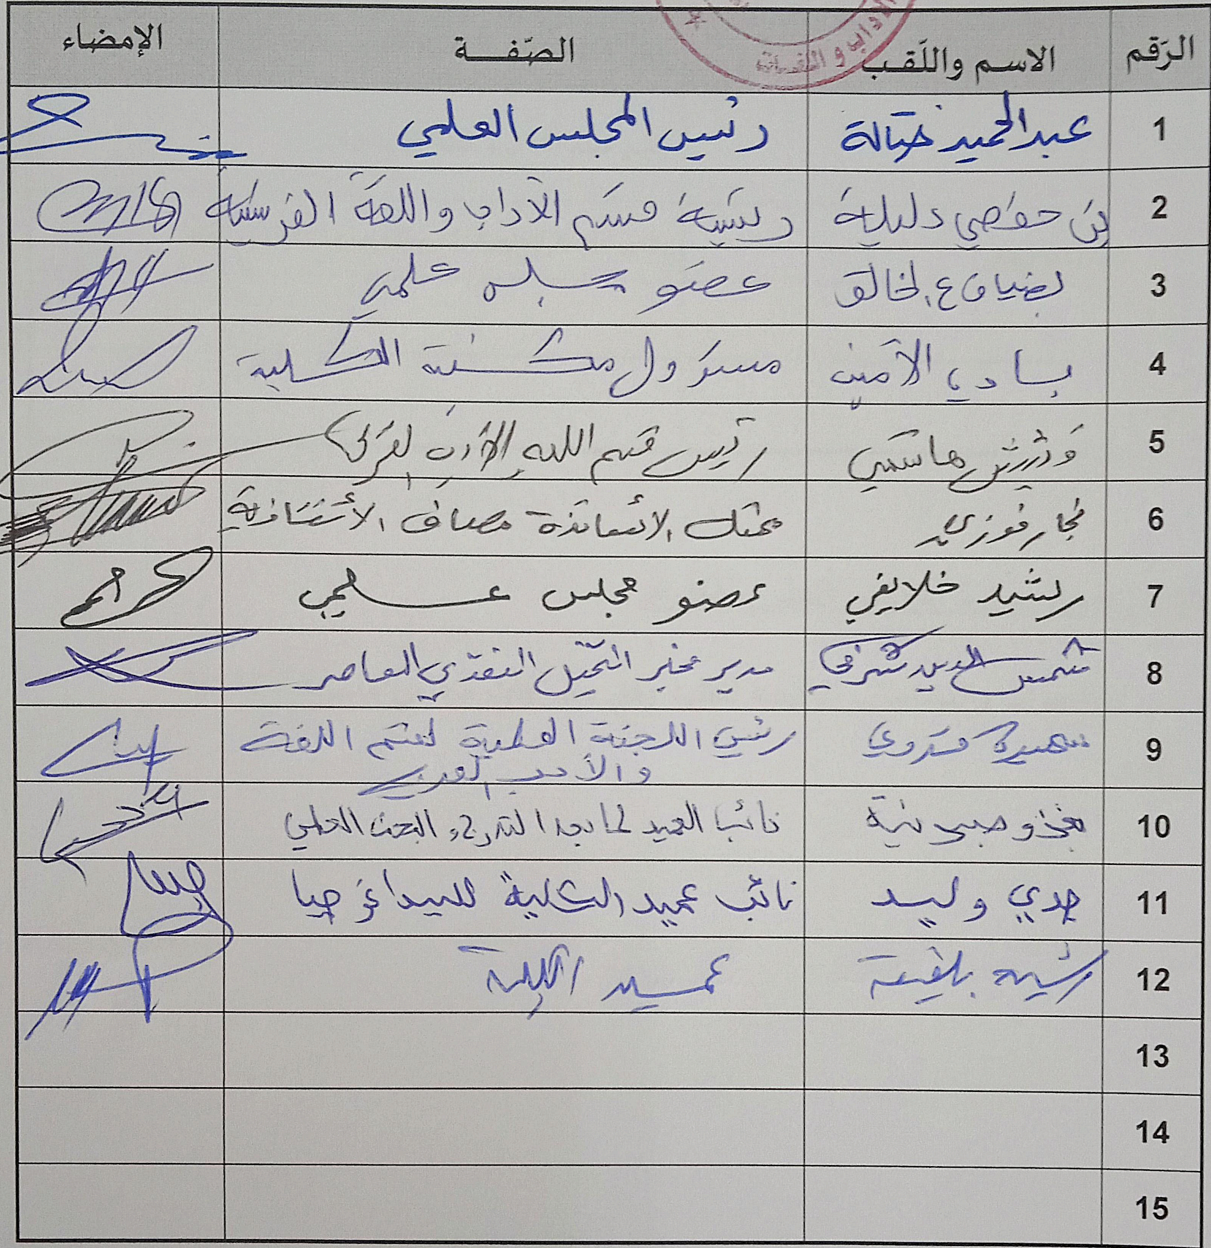 الآداب واللغات
الرّقم الاسم واللّقب الصّفة الإمضاء
1 عبد الحميد ختالة رئيس المجلس العلمي
2 بن حفصي دليلة رئيسة قسم الآداب واللغة الفرنسية
3 بضياف ع. الخالق عضو مجلس علمي
4 بادي الأمين مسؤول مكتبة الكلية
5 هاشمي رئيس قسم اللغة والأدب العربي
6 نجار فوزي ممثل الأساتذة مصاف الأستاذية
7 رشيد خلايفي عضو مجلس علمي
8 شمس الدين شرفي مدير مخبر التخييل النقدي المعاصر
9 سميرة رئيس اللجنة العلمية لقسم اللغة
والأدب العربي
10 نائب العميد لما بعد التدرج والبحث العلمي
11 جدي وليد نائب عميد الكلية للبيداغوجيا
12 عميد الكلية
13
14
15